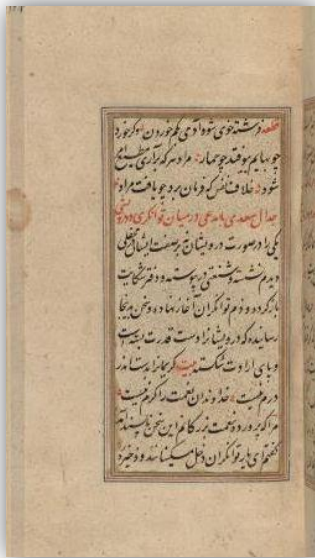 قطعه فرشته خوی شود آدمی بکم خوردن وگر خورد
چو بهایم بیوفتد چو جماد مراد هرکه برآری مطیع امر
شود خلاف نفس که فرمان برد چو یافت مراد
جدال سعدی با مدعی در میان توانگری و درویشی
یکی را در صورت درویشان نه بر صفت ایشان در محفلی
دیدم نشسته و شنعتی در پیوسته و دفتر شکایت
باز کرده و ذم توانگران آغاز نهاده و سخن بدینجا
رسانیده که درویشانرا دست قدرت بسته است
و پای ارادت شکسته بیت کریمانرا بدست اندر
درم نیست خداوندان نعمت را کرم نیست
مرا که پرورده نعمت بزرگانم این سخن ناپسند آمد
گفتم ای یار توانگران دخل مسکینانند و ذخیره